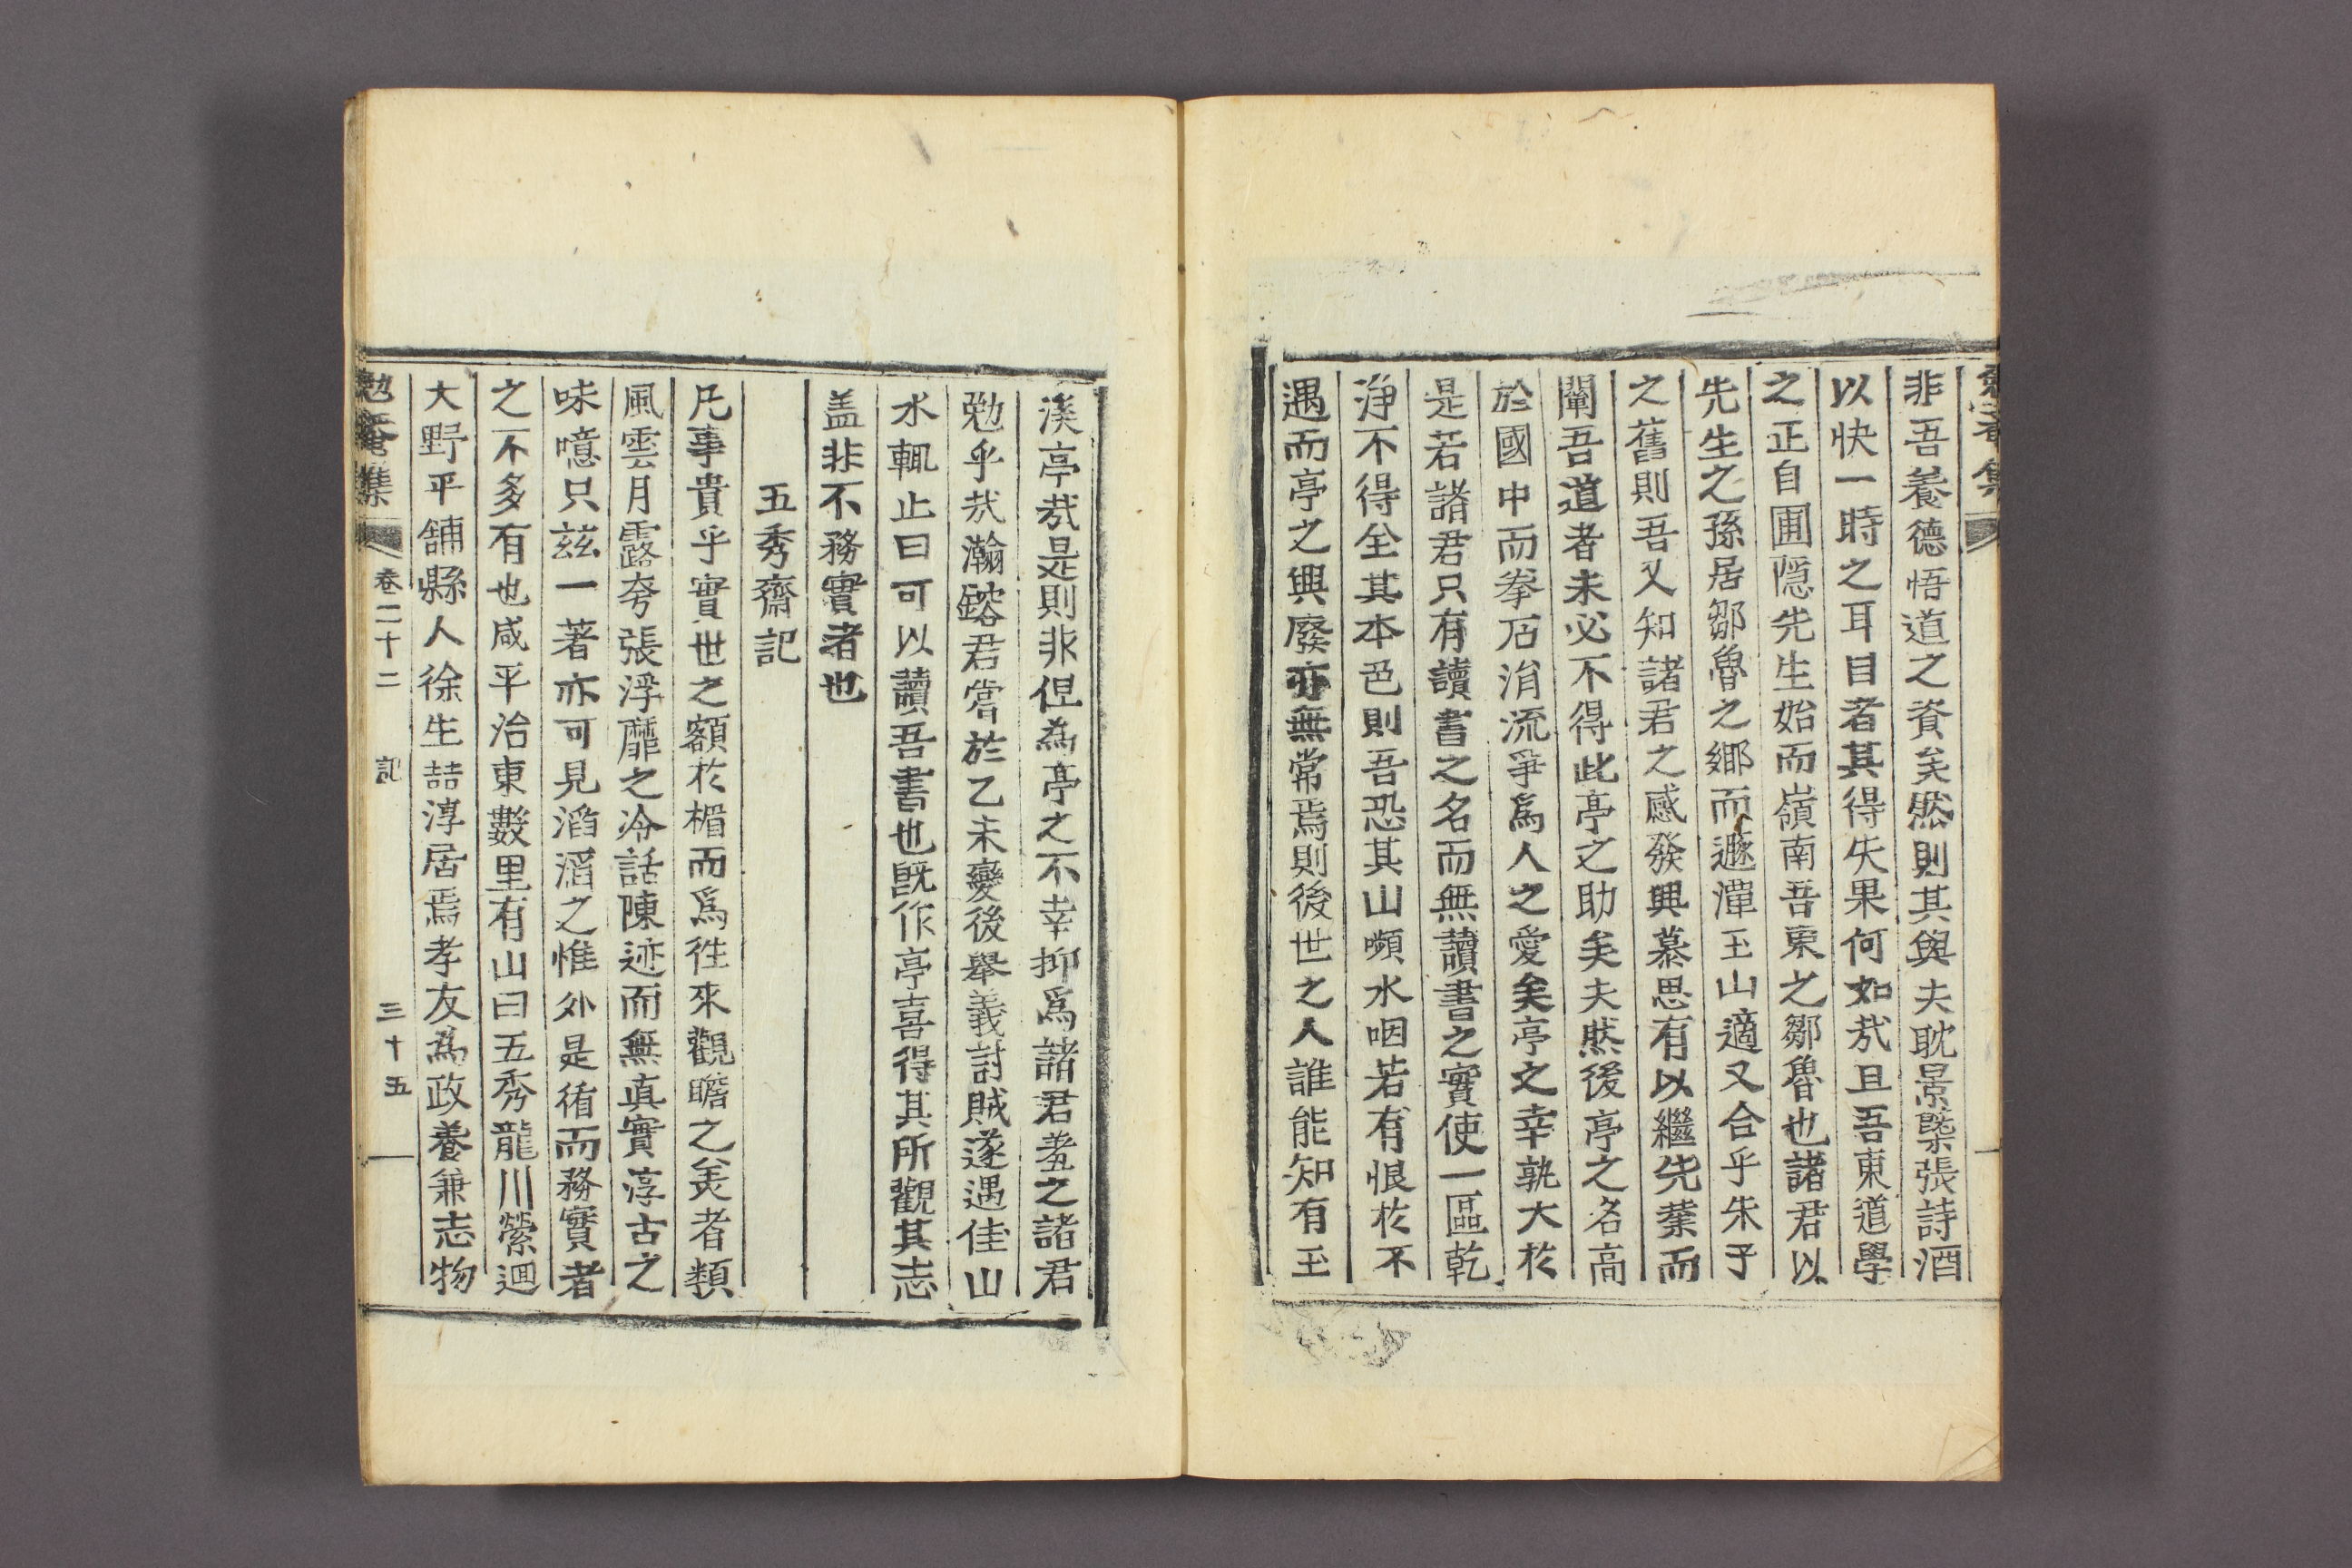 非吾養德悟道之資矣然則其與夫耽景槩張詩酒
以快一時之耳目者其得失果何如㢤且吾東道學
之正自圃隱先生始而嶺南吾東之鄒魯也諸君以
先生之孫居鄒魯之鄕而遯潭玉山適又合乎朱子
之舊則吾又知諸君之感發興慕思有以繼先業而
闡吾道者未必不得此亭之助矣夫然後亭之名高
於國中而拳石涓流爭爲人之愛矣亭之幸孰大於
是若諸君只有讀書之名而無讀書之實使一區乾
淨不得全其本色則吾恐其山嚬水咽若有恨於不
遇而亭之興廢亦無常焉則後世之人誰能知有玉
溪亭㢤是則非但為亭之不幸抑爲諸君羞之諸君
勉乎㢤瀚鎔君嘗於乙未變後擧義討賊遂遇佳山
水輒止曰可以讀吾書也旣作亭喜得其所觀其志
盖非不務實者也
五秀齋記
凡事貴乎實世之額於楣而爲徃來觀瞻之美者類
風雲月露夸張浮靡之冷話陳迹而無眞實淳古之
味噫只玆一著亦可見滔滔之惟外是循而務實者
之不多有也咸平治東數里有山曰五秀龍川縈廻
大野平鋪縣人徐生喆淳居焉孝友為政養兼志物
勉菴集 卷二十二 記 三十五